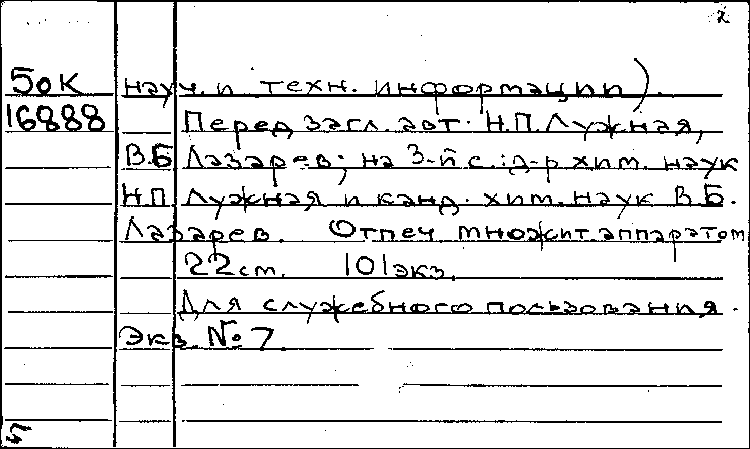 2
50К науч. и техн. информации).
16888 Перед загл. авт. Н.П. Лужная,
В.Б Лазарев; на 3-й с.: д-р хим. наук
Н.П. Лужная и канд. хим. наук В.Б.
Лазарев. Отпеч множит. аппаратом
22 см. 101 экз.
Для служебного пользования.
Экз. № 7.